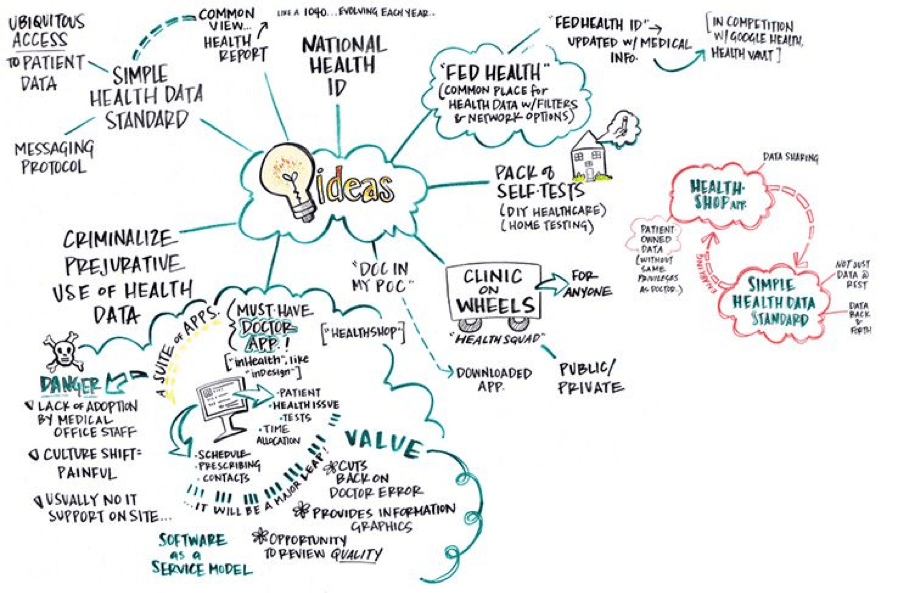 UBIQUITOUS
ACCESS
TO PATIENT
DATA
SIMPLE
HEALTH DATA
STANDARD
MESSAGING
PROTOCOL
COMMON
VIEW...
HEALTH
REPORT
LIKE A 1040...EVOLVING EACH YEAR..
NATIONAL
HEALTH
ID
"FED HEALTH"
(COMMON PLACE for
HEALTH DATA W/FILTERS
& NETWORK OPTIONS)
"FED HEALTH ID" →
UPDATED W/ MEDICAL
INFO.
[IN COMPETITION
W/ GOOGLE HEALTH,
HEALTH VAULT]
ideas
PACK of
SELF-TESTS
(DIY HEALTHCARE)
(HOME TESTING)
DATA SHARING
HEALTH-
SHOP APP.
PATIENT-
OWNED
DATA
(WITHOUT
SAME
PRIVILEGES
AS DOCTOR.)
ENABLING
SIMPLE
HEALTH DATA
STANDARD
NOT JUST
DATA @
REST
DATA
BACK &
FORTH
CRIMINALIZE
PREJURATIVE
USE of HEALTH
DATA
"DOC IN
MY POC"
DOWNLOADED
APP.
CLINIC
ON
WHEELS
"HEALTH SQUAD"
FOR
ANYONE
PUBLIC/
PRIVATE
A SUITE of APPS.
(MUST-HAVE
DOCTOR
APP.!
["HEALTHSHOP"]
["inHealth", like
"inDesign"]
DANGER
LACK of ADOPTION
BY MEDICAL
OFFICE STAFF
CULTURE SHIFT=
PAINFUL
USUALLY NO IT
SUPPORT ON SITE...
•PATIENT
•HEALTH ISSUE
•TESTS
•TIME
ALLOCATION
•SCHEDULE
•PRESCRIBING
•CONTACTS
...IT WILL BE A MAJOR LEAP!
VALUE
CUTS
BACK ON
DOCTOR ERROR
PROVIDES INFORMATION
GRAPHICS
OPPORTUNITY
TO REVIEW QUALITY
SOFTWARE
as a
SERVICE MODEL